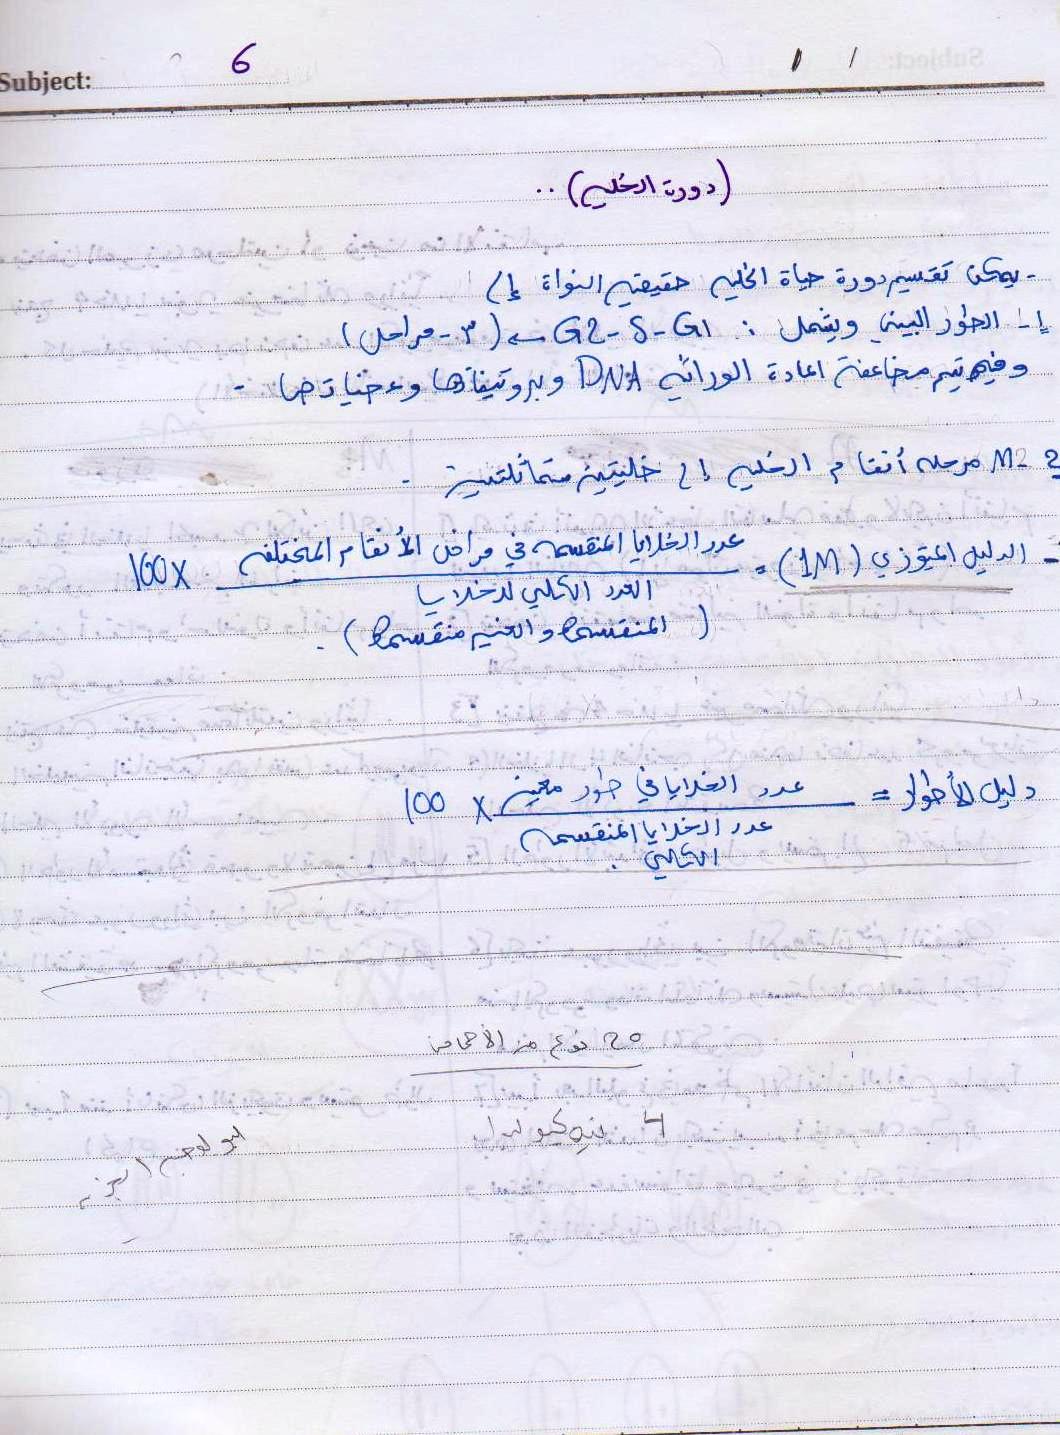 Subject: 6 / /
(دورة الخليه) ..
- يمكن تقسيم دورة حياة الخليه حقيقيه النواة إلى
1- الطور البيني ويشمل : G2 - S - G1 ← (٣ - مراحل)
وفيه يتم مضاعفة اعادة الوراثيه DNA وبروتيناتها وعضياتها -
2- M مرحله أنقسام الخليه إلى خليتين متماثلتين -
- الدليل الميتوزي (1M) = عدد الخلايا المنقسمه في مراحل الأنقسام المختلفه × 100
العدد الكلي للخلايا
(المنقسمه والغير منقسمه) .
دليل الأطوار = عدد الخلايا في طور معين × 100
عدد الخلايا المنقسمه
الكلي .
20 نوع من الأحماض
4 نيوكليوتيدات